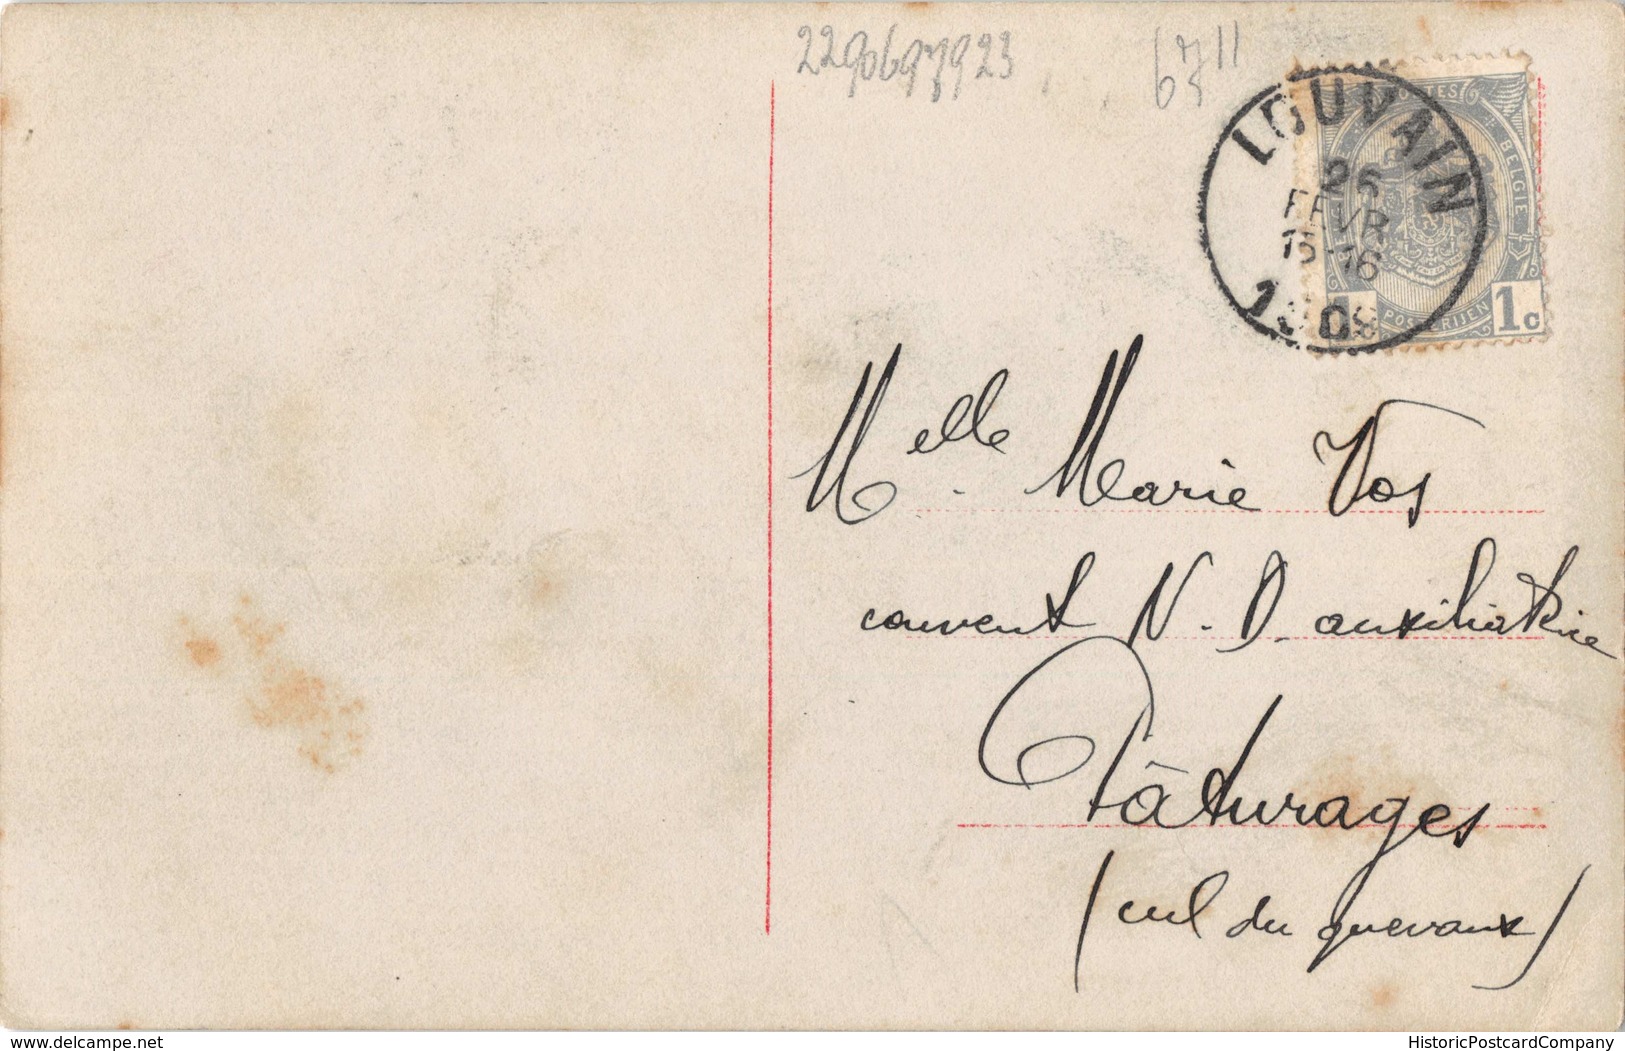 2290697923
6711
LOUVAIN
26
FEVR
15-16
1908
POSTES
BELGIE
POSTERIJEN
1c
Melle. Marie Vos
couvent N. D. auxiliatrice
Pâturages
(cul du quevaux)
delcampe.net
HistoricPostcardCompany